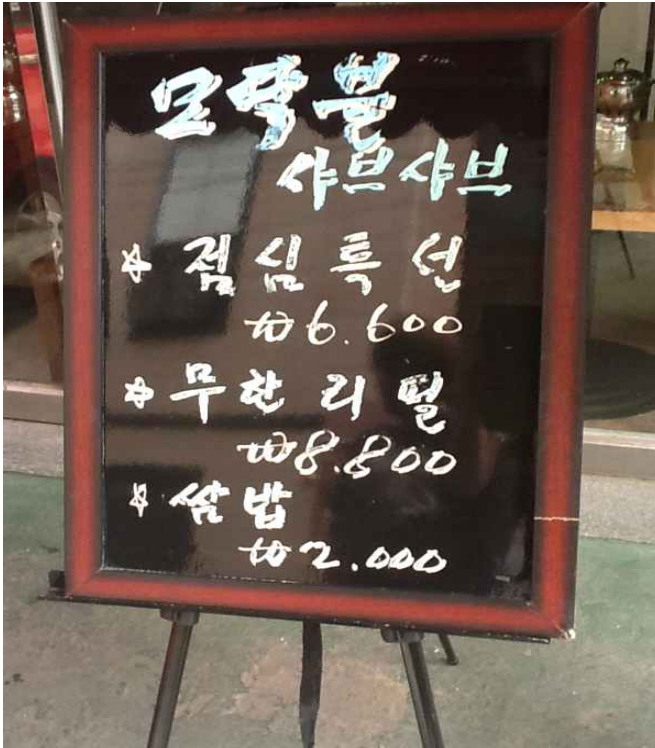 모닥불
샤브샤브
☆ 점심특선
₩6.600
☆ 무한리필
₩8.800
☆ 쌈밥
₩2.000